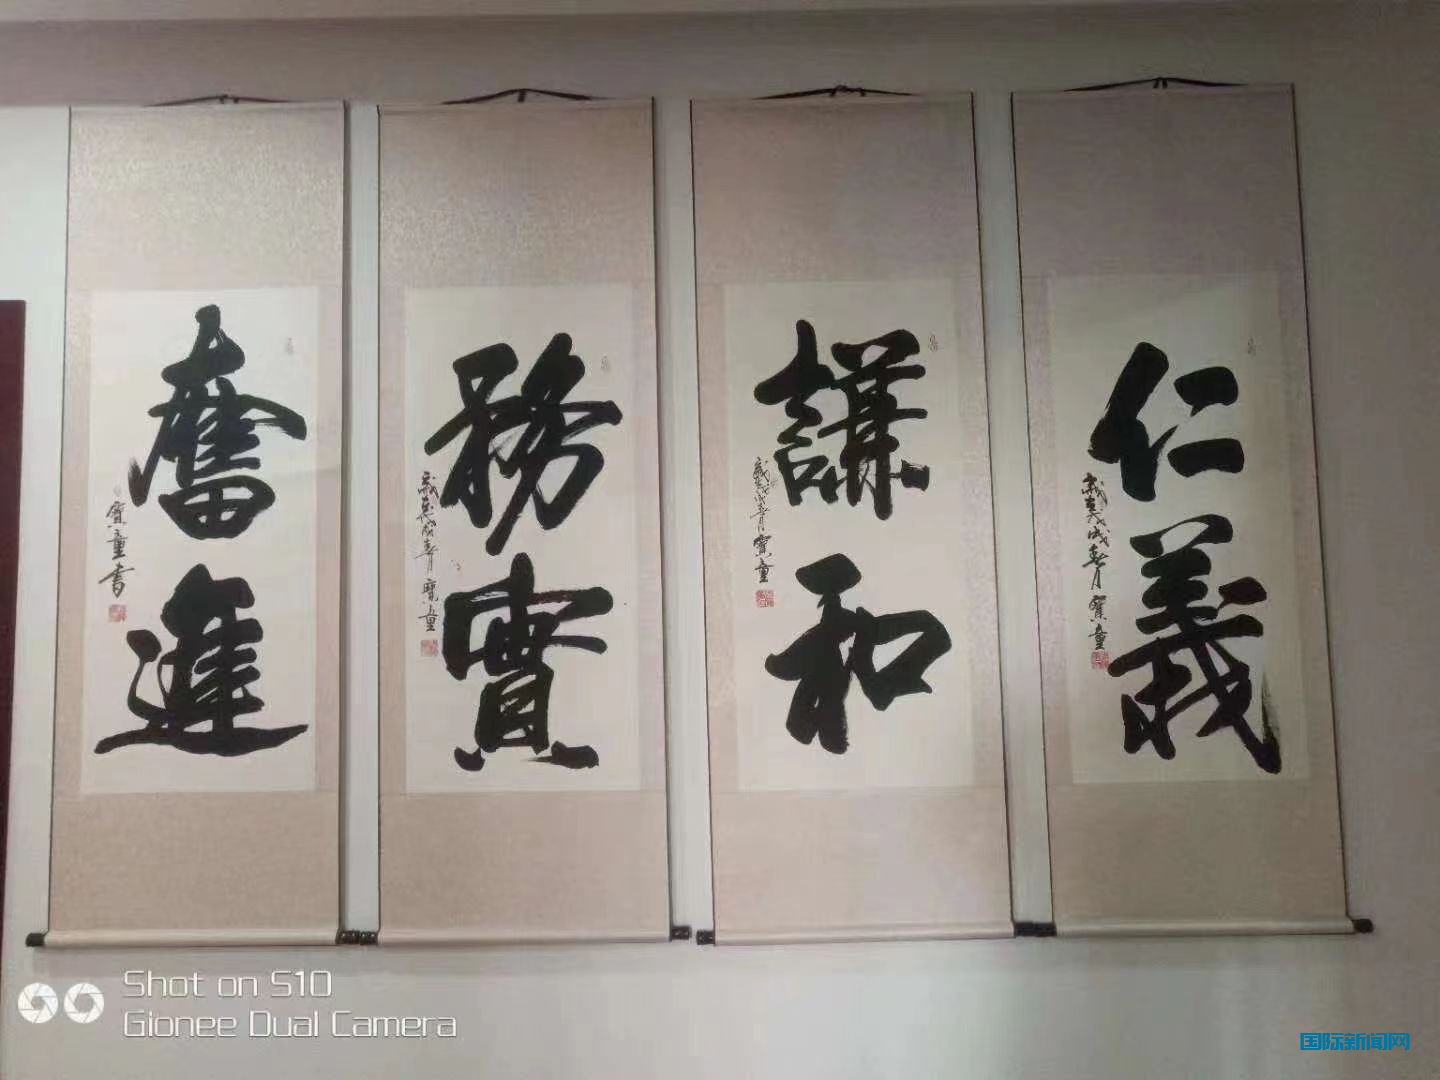 仁義
歲戊戌春月 寶童
講和
歲戊戌春月 寶童
務實
歲戊戌春月 寶童
奮進
寶童書
Shot on S10
Gionee Dual Camera
国际新闻网